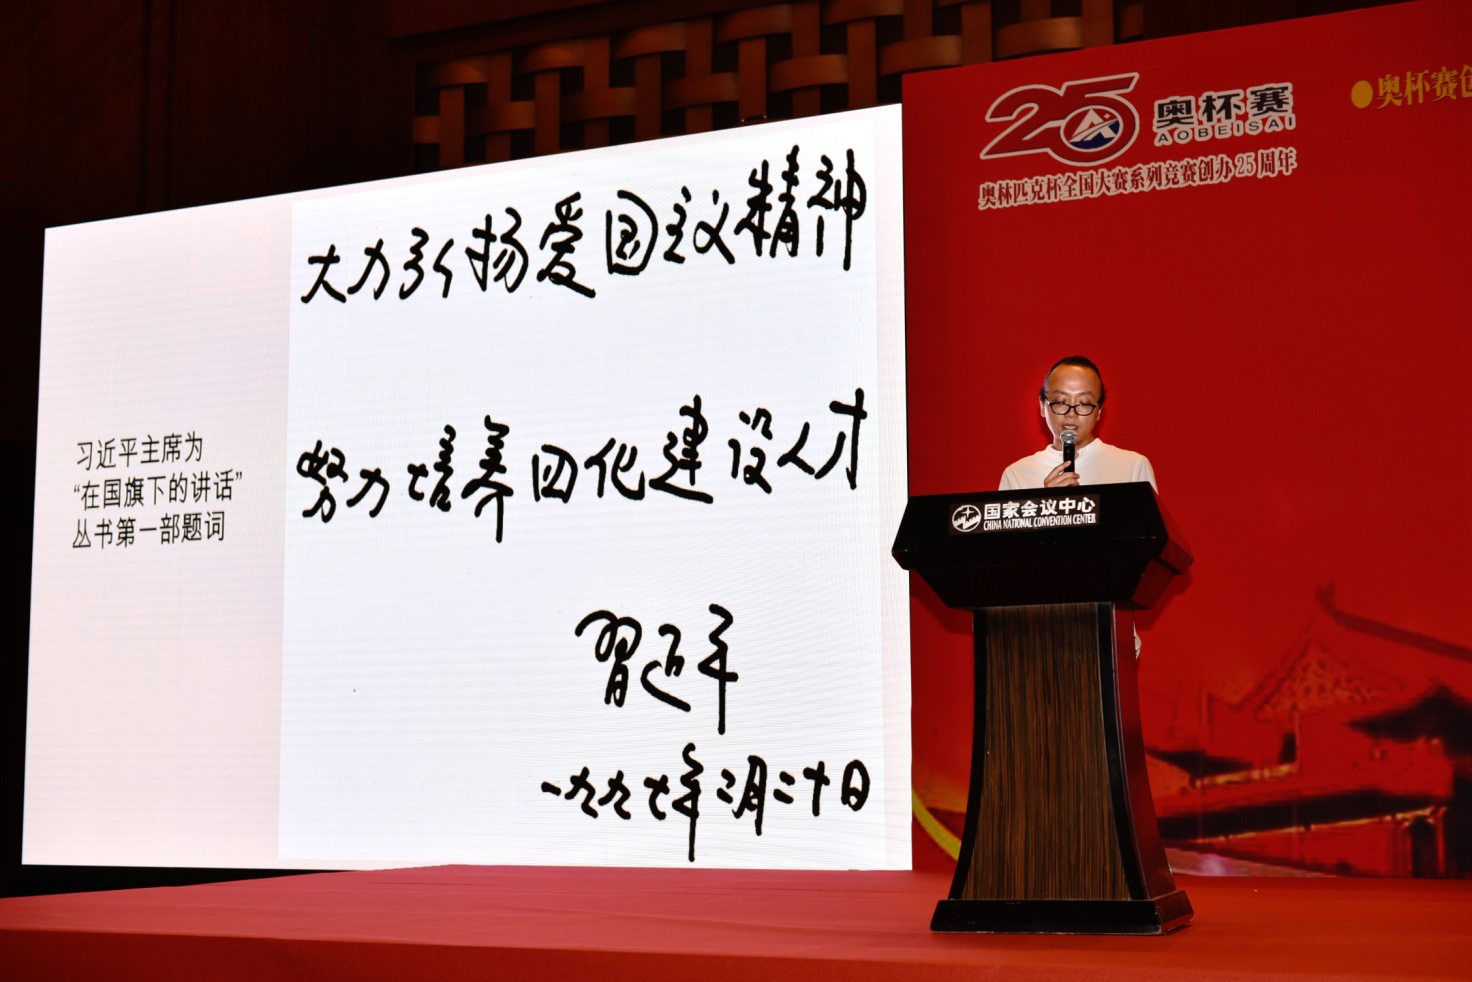 大力弘扬爱国主义精神
努力培养四化建设人才
習近平
一九九七年二月二十日
习近平主席为
“在国旗下的讲话”
丛书第一部题词
25 奥杯赛
AOBEISAI
奥林匹克杯全国大赛系列竞赛创办25周年
●奥杯赛创
国家会议中心
CHINA NATIONAL CONVENTION CENTER